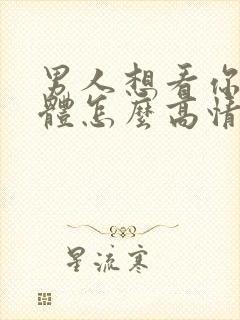 男人想看你
體怎麼高情
星流寒